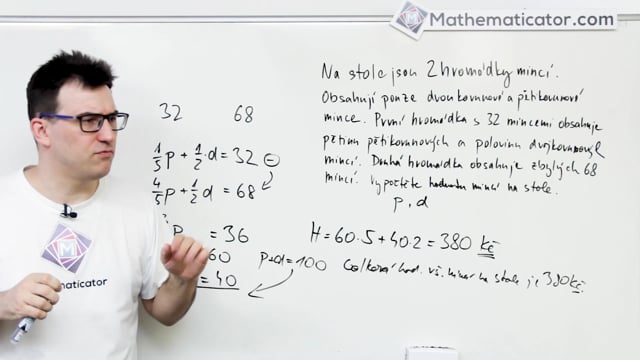 Mathematicator.com
Na stole jsou 2 hromádky mincí.
Obsahují pouze dvoukorunové a pětikorunové
mince. První hromádka s 32 mincemi obsahuje
pětinu pětikorunových a polovinu dvoukorunových
mincí. Druhá hromádka obsahuje zbylých 68
mincí. Vypočtěte hodnotu mincí na stole.
p, d
32 68
1/5 p + 1/2 · d = 32 ⊖
4/5 p + 1/2 d = 68
p = 36
60
= 40
p+d=100
H = 60·5 + 40·2 = 380 Kč
Celková hod. vš. mincí na stole je 380 Kč.
M
hematicator